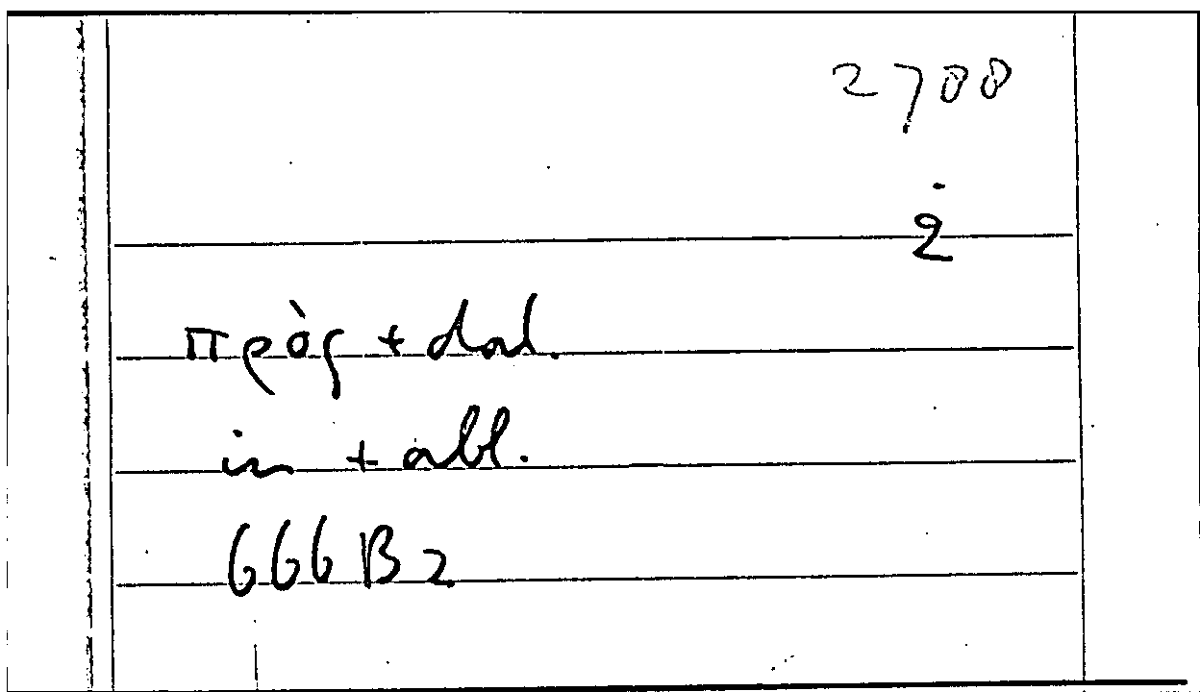 2700
2
πρὸς + dat.
in + abl.
666B2